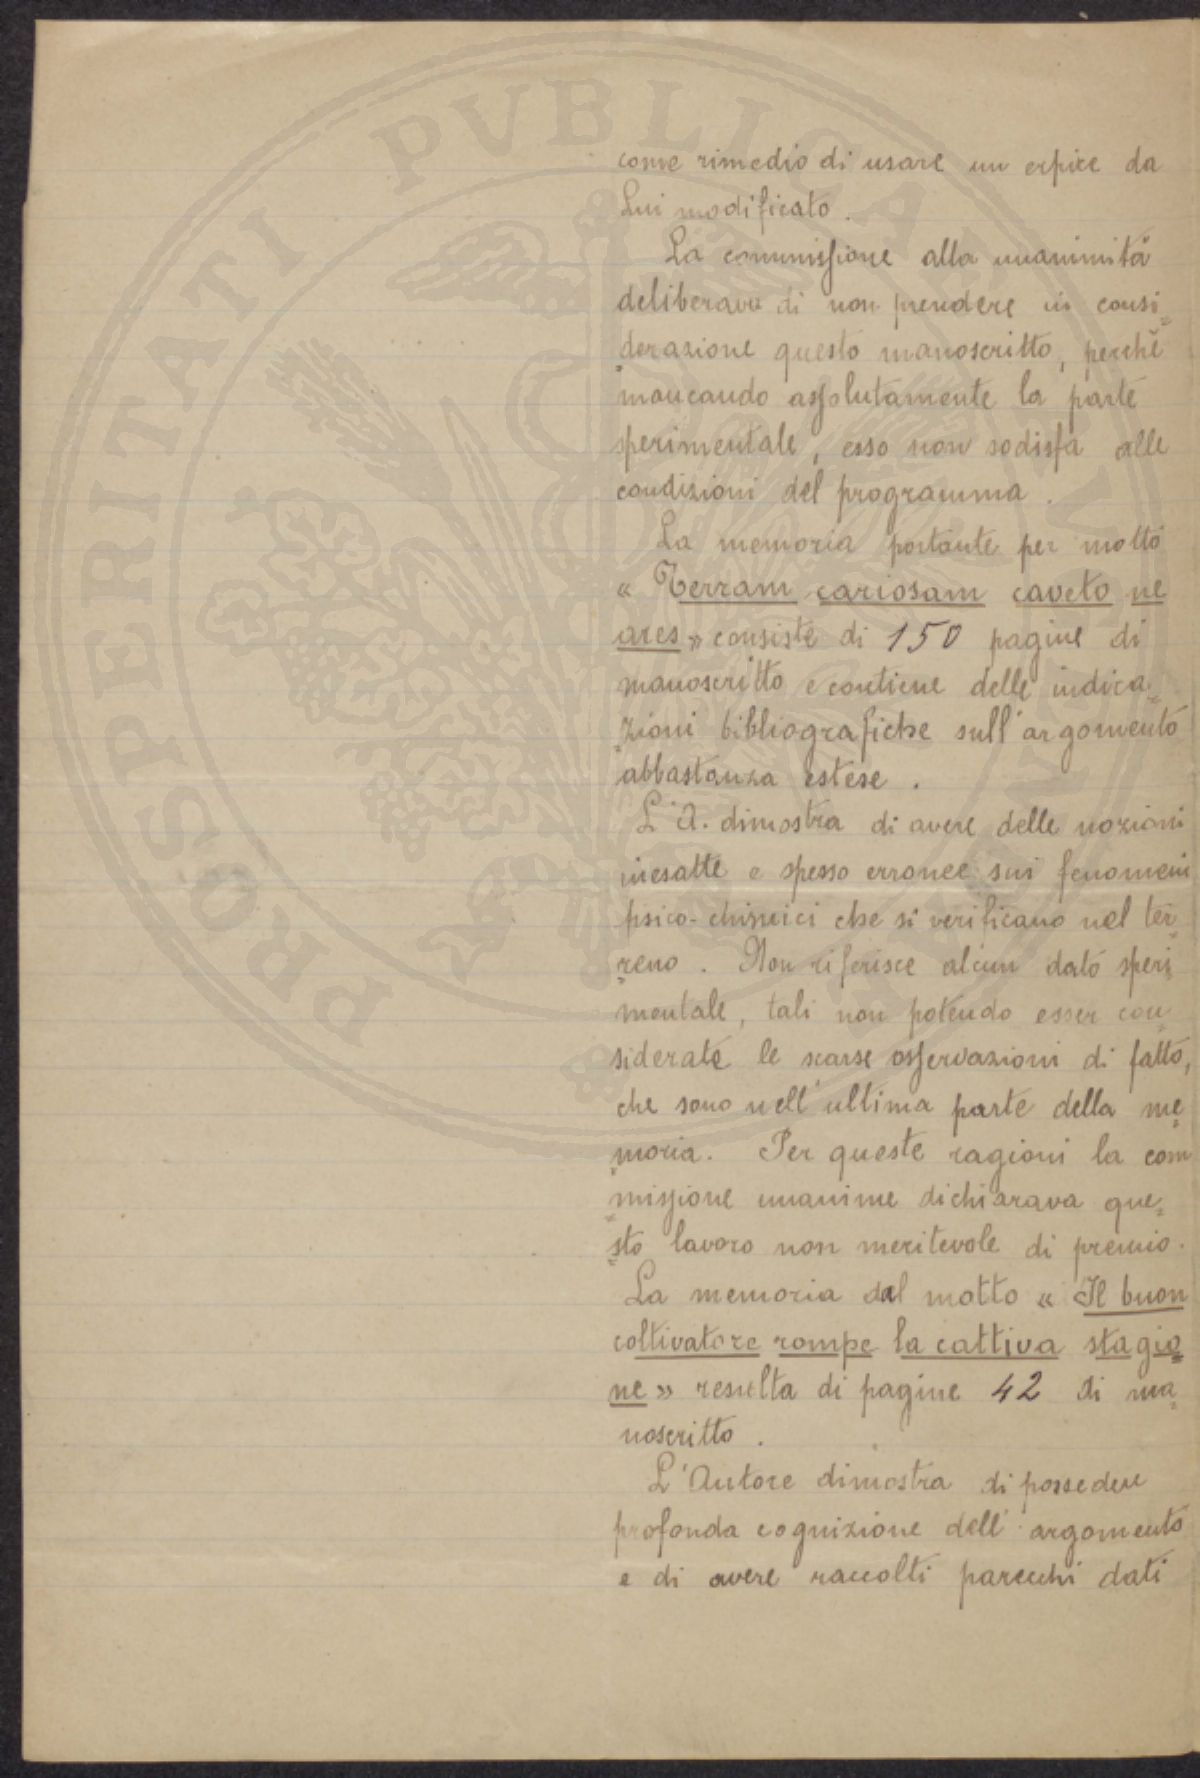 PROSPERITATI PVBLICAE AVGENDAE
come rimedio di usare un erpice da
Lui modificato.
La commissione alla unanimità
deliberava di non prendere in consi=
=derazione questo manoscritto, perchè
mancando assolutamente la parte
sperimentale, esso non sodisfa alle
condizioni del programma.
La memoria portante per motto
« Terram cariosam caveto ne
ares » consiste di 150 pagine di
manoscritto e contiene delle indica=
=zioni bibliografiche sull'argomento
abbastanza estese.
L'A. dimostra di avere delle nozioni
inesatte e spesso erronee sui fenomeni
fisico-chimici che si verificano nel ter=
=reno. Non riferisce alcun dato speri=
mentale, tali non potendo esser con=
siderate le scarse osservazioni di fatto,
che sono nell'ultima parte della me=
=moria. Per queste ragioni la com
=missione unanime dichiarava que=
=sto lavoro non meritevole di premio.
La memoria dal motto « Il buon
coltivatore rompe la cattiva stagio=
ne » resulta di pagine 42 di ma=
noscritto.
L'Autore dimostra di possedere
profonda cognizione dell'argomento
e di avere raccolti parecchi dati